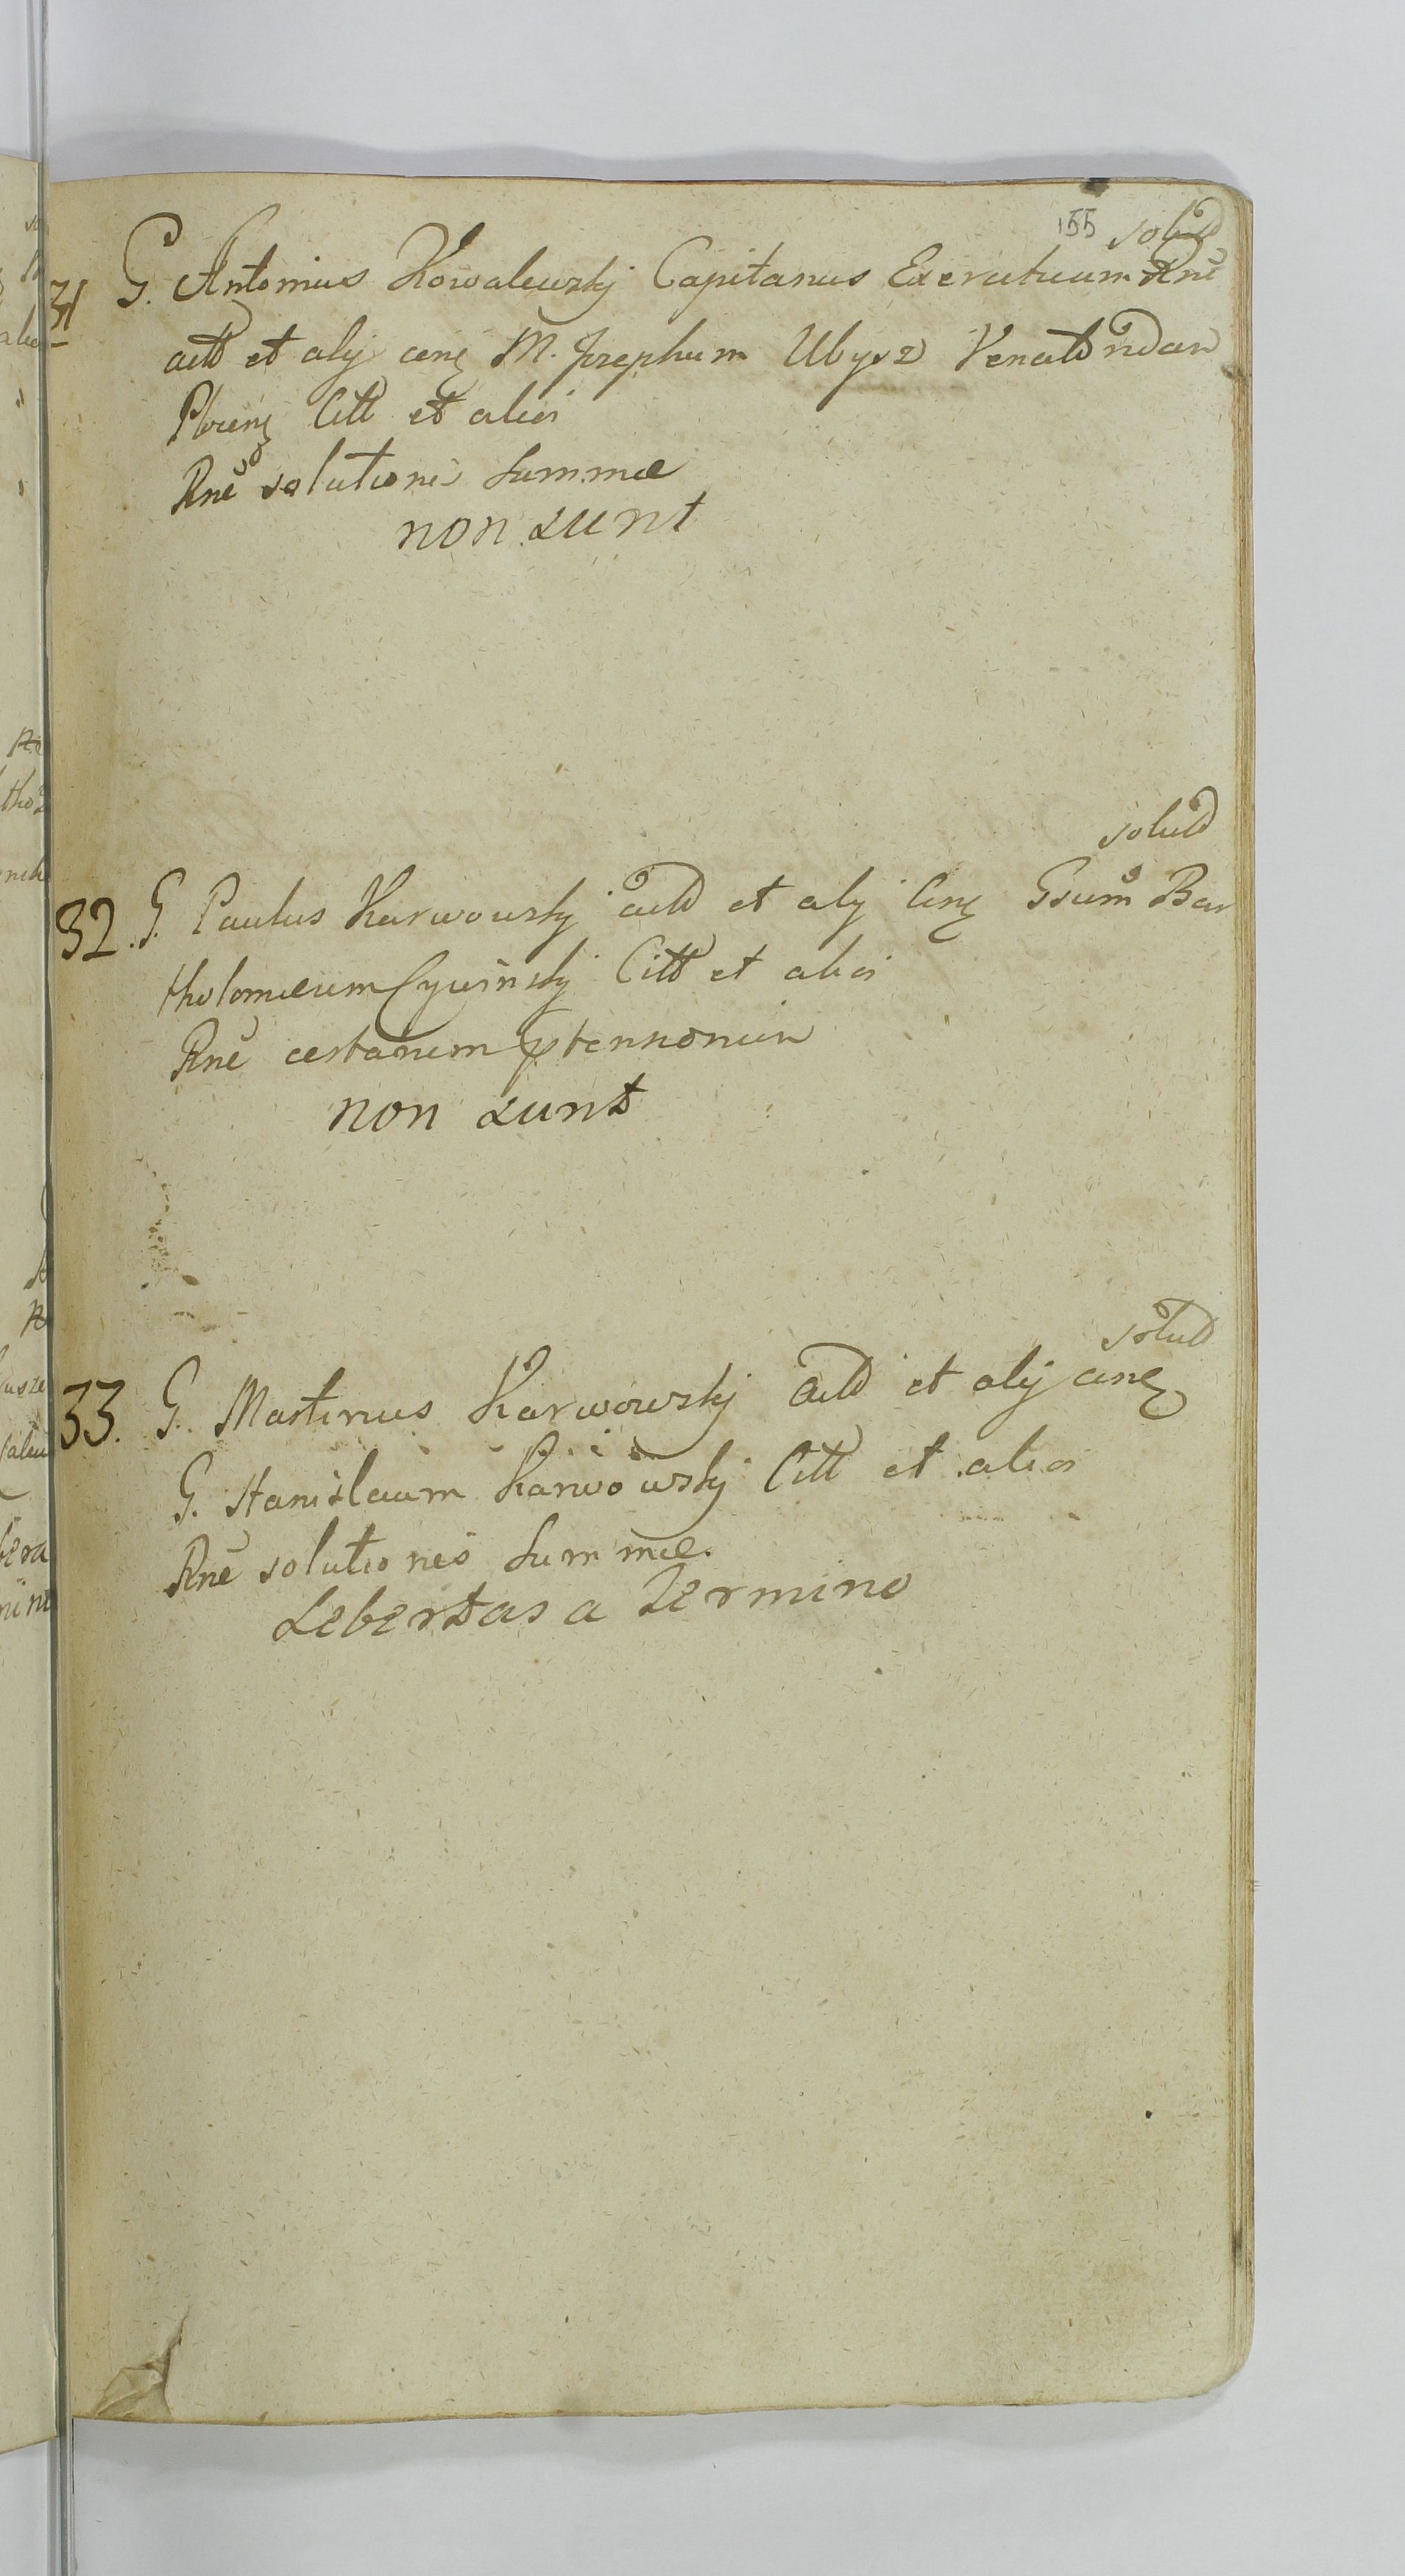 155 solud
31 G. Antonius Kowalewskj Capitanus Exercituum Rnē
actt et alÿ cirq M. Josephum Ubysz Venatt
Citt et alios
Rnē solutionis summæ
non sunt
solutt
32. G. Paulus Karwowskj actt et alÿ cirq Gsum Bar
tholomæum Cywinskj Citt et alios
Rnē certarum ptensionum
non sunt
solutt
33. G. Martinus Karwowskj actt et alÿ cirq
G. Stanislaum Karwowskj Citt et alios
Rnē solutionis summæ.
Libertas a Termino